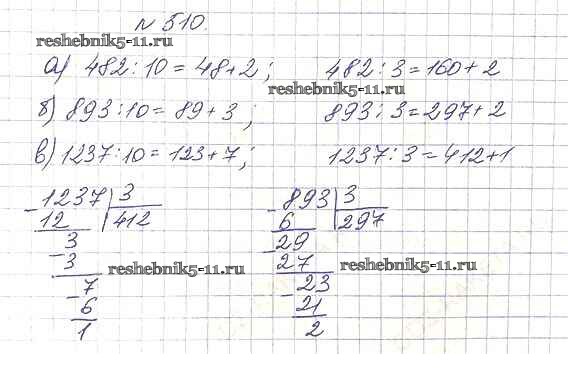 № 510.
reshebnik5-11.ru
а) 482:10=48+2; 482:3=160+2
reshebnik5-11.ru
б) 893:10=89+3; 893:3=297+2
в) 1237:10=123+7; 1237:3=412+1
- 1237 | 3
12 | 412
3
- 3
- 7
6
1
- 893 | 3
6 | 297
- 29
27
- 23
21
2
reshebnik5-11.ru
reshebnik5-11.ru